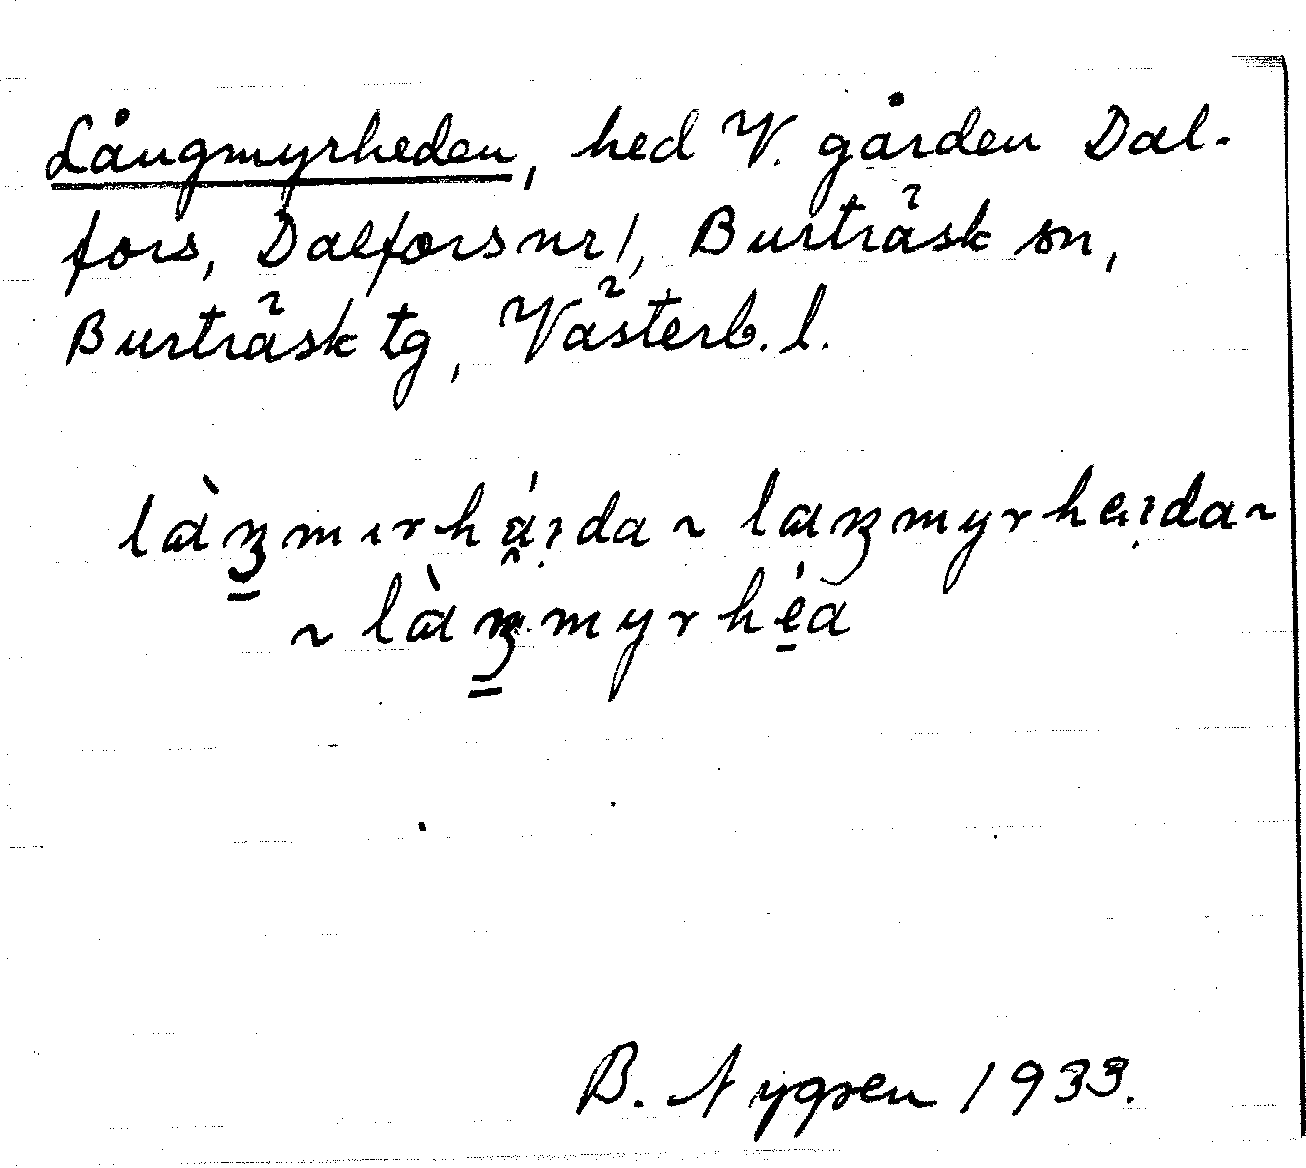 Långmyrheden, hed V. gården Dal-
fors, Dalfors nr 1, Burträsk sn,
Burträsk tg, Västerb. l.
làŋmırhá̤ıda ~ laŋmyrhaıda ~
~ làŋmyrhéa
B. Nygren 1933.